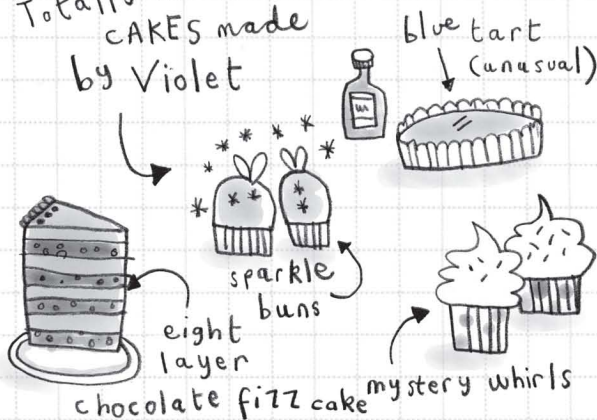 Totally
CAKES made
by Violet
blue tart
(unusual)
sparkle
buns
eight
layer
chocolate fizz cake
mystery whirls